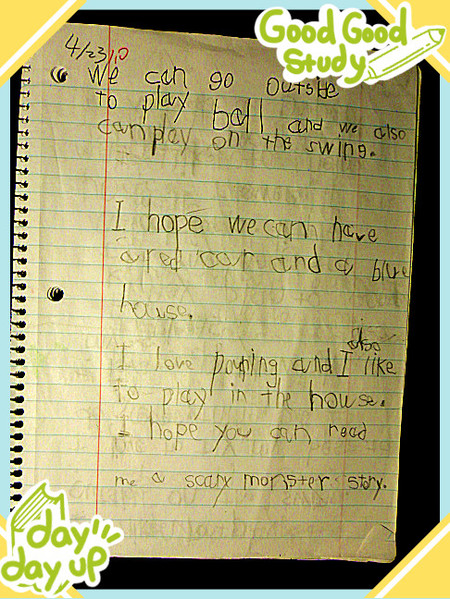 Good Good
Study
4/23/10
We can go outside
to play ball and we also
can play on the swing.
I hope we can have
a red car and a blue
house.
also
I love and I like
to play in the house.
I hope you can read
me a scary monster story.
day
day up